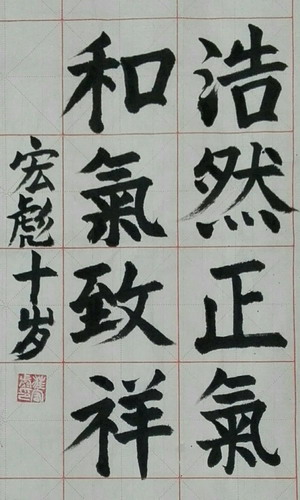 浩然正氣
和氣致祥
宏彪十岁